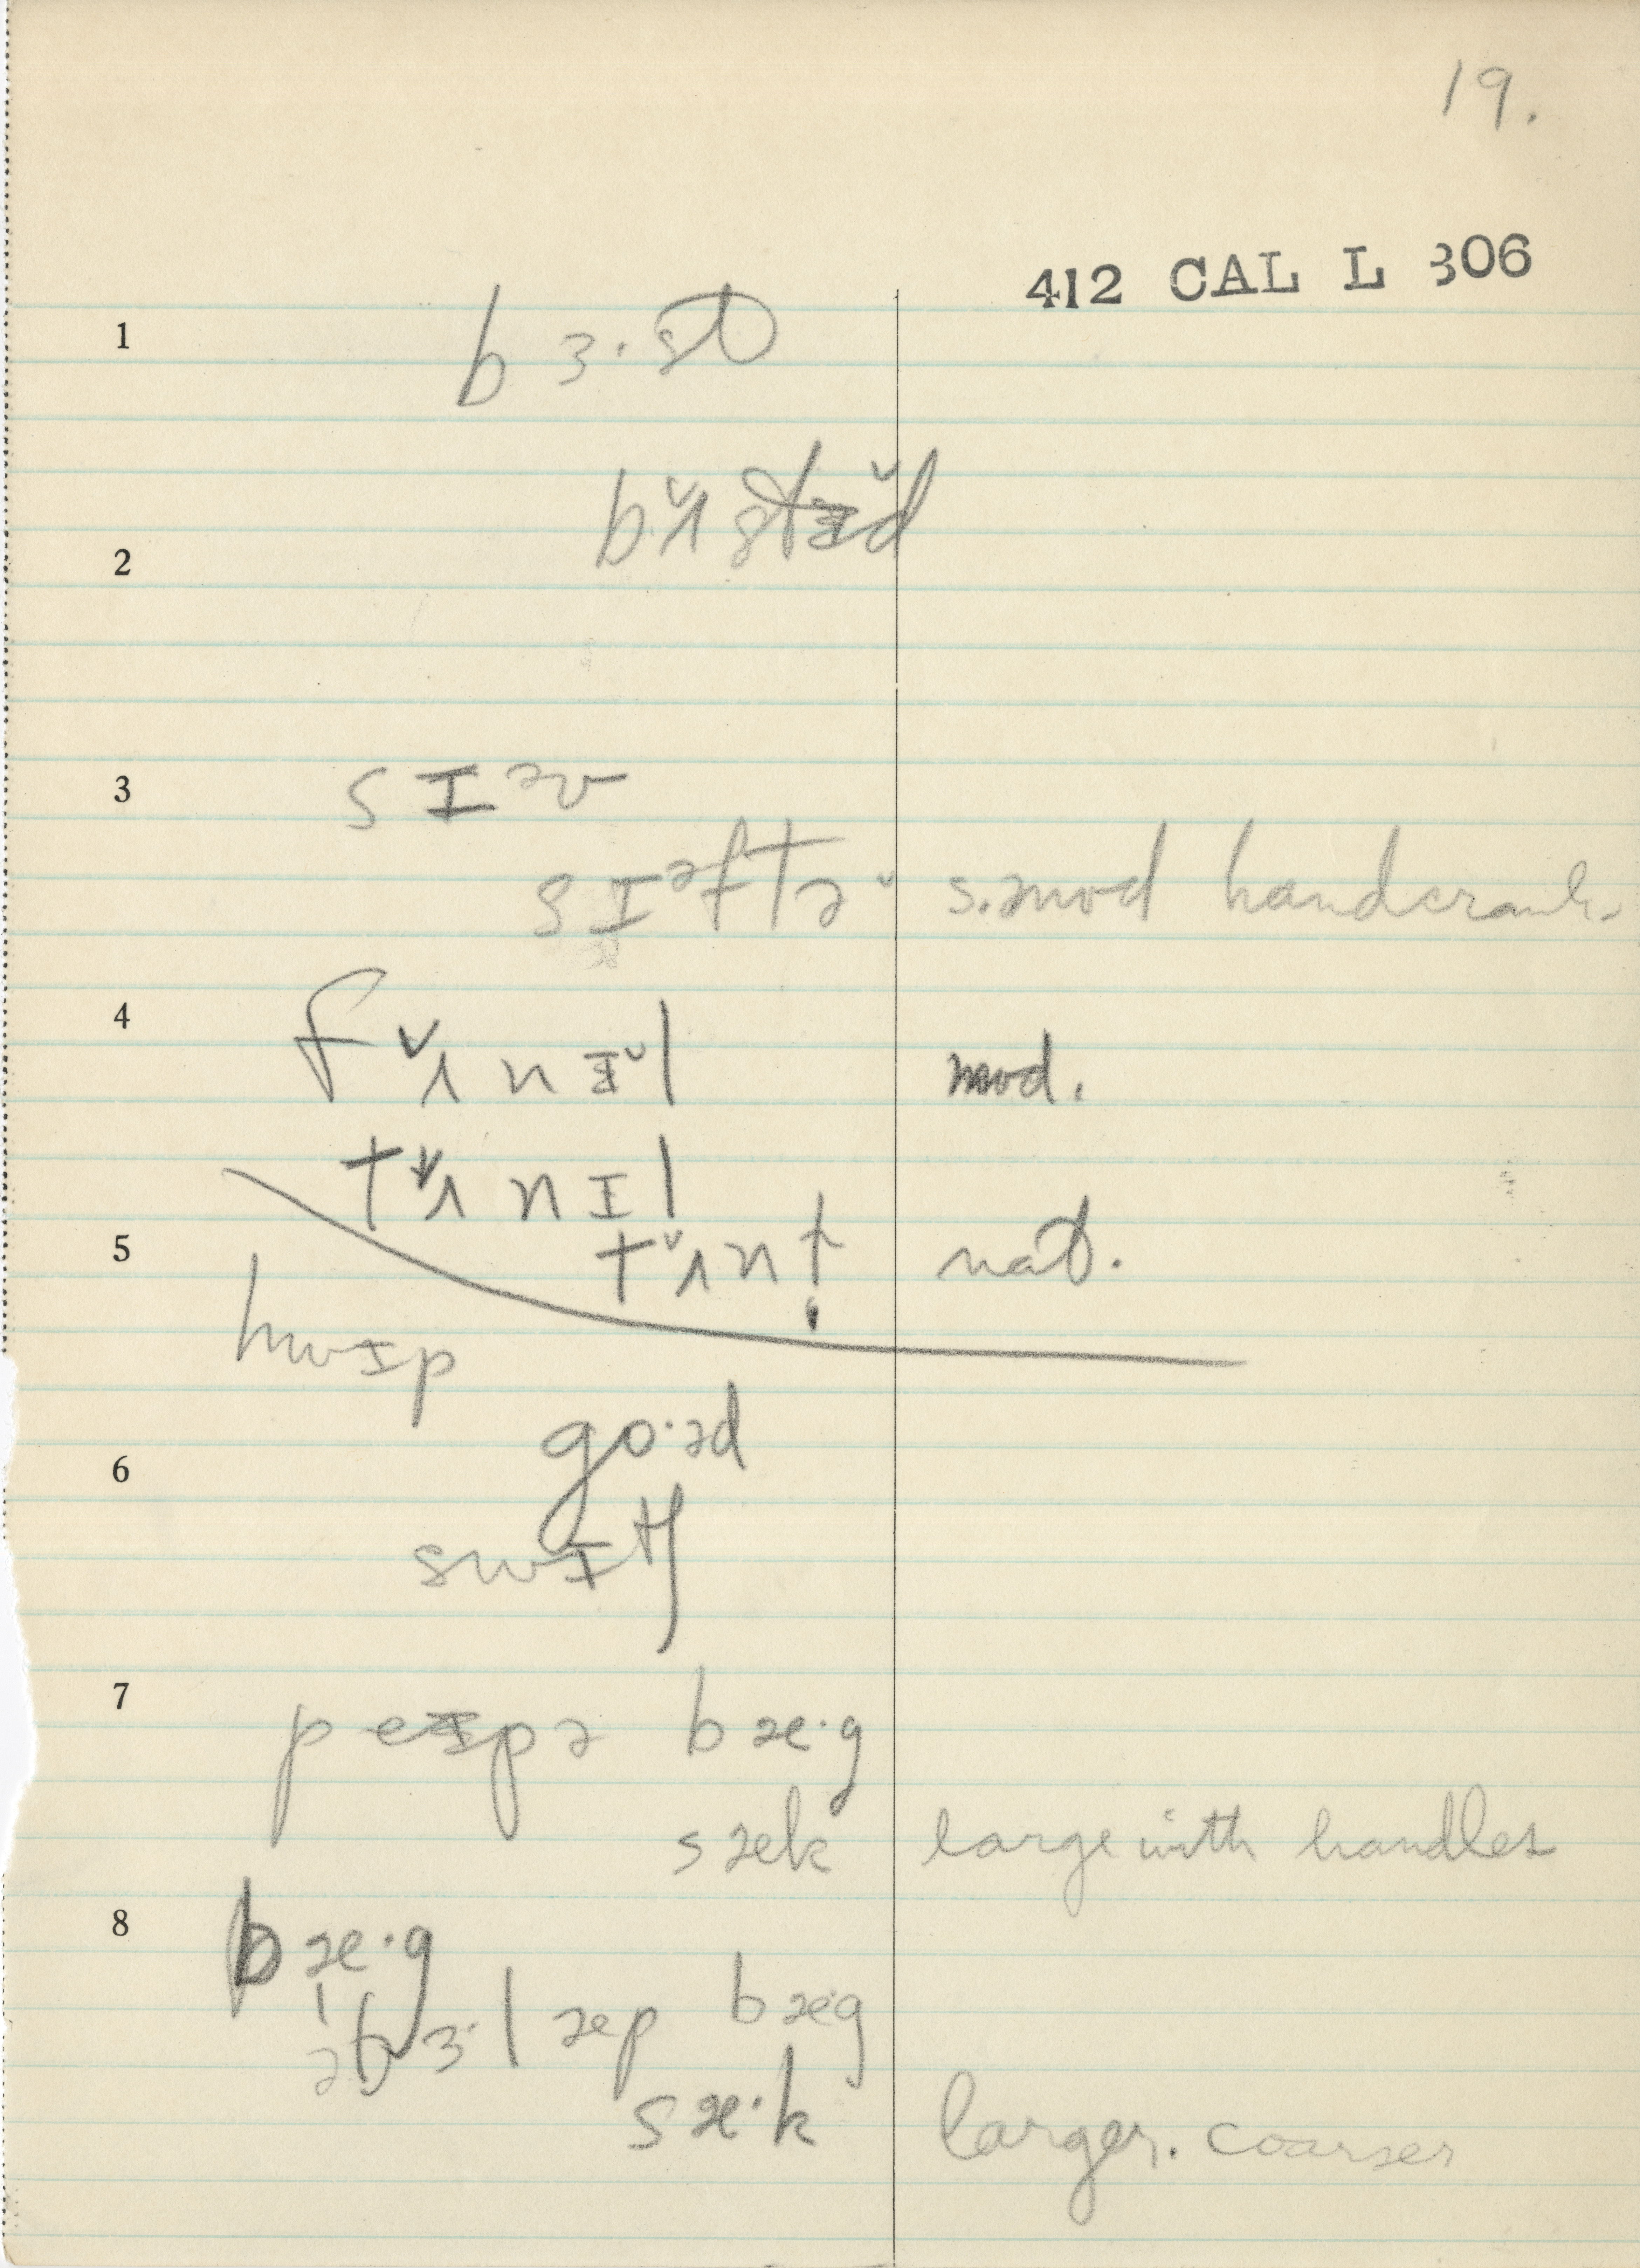 19.
412 CAL L 306
1 bɜ·st
2 bʌ̆stɪ̆d
3 sɪᵊv
sɪᵊftə˘ s. mod handcrank.
4 fʌ̆nɪ̆l mod.
tʌ̆nɪl
5 tʌ̆nḷ nat.
hwɪp
6 go·əd
swɪtʃ
7 peɪpə bæ·g
sæk large with handles
8 bæ·g
bɜ·læp bæ·g
sæ·k larger. coarser